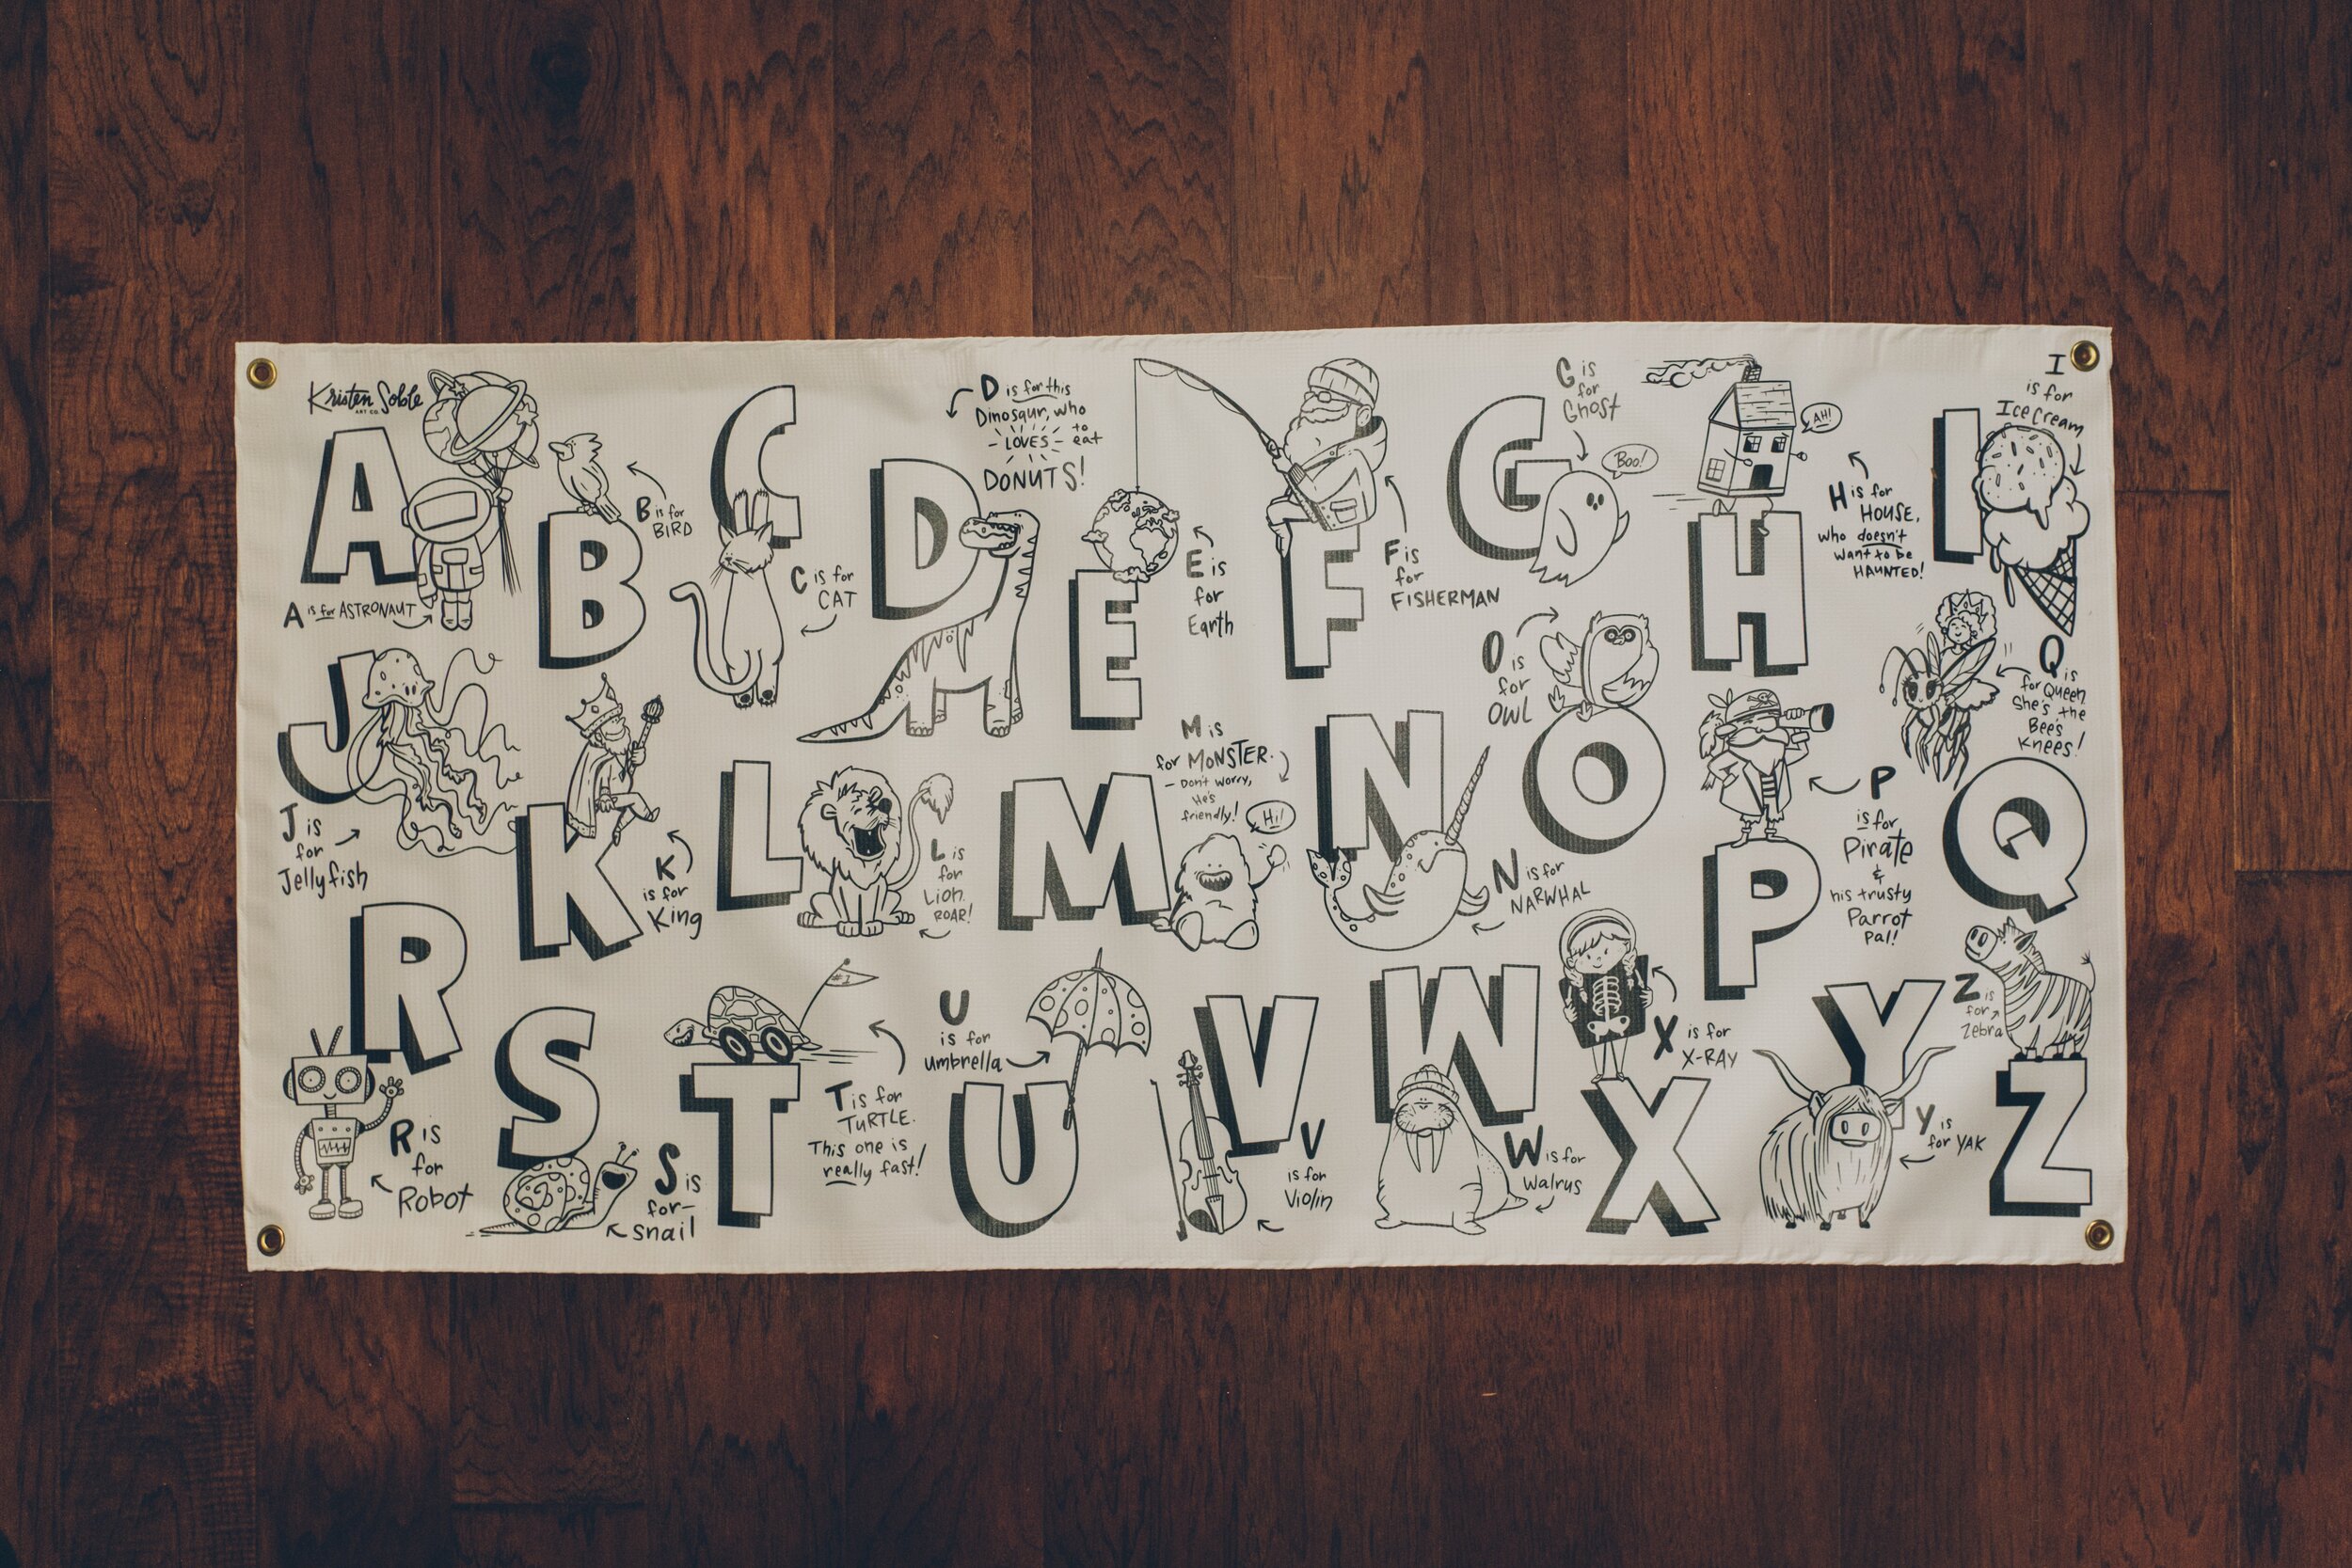 Kristen Soble
ART CO.
A
A is for ASTRONAUT
B
B is for
BIRD
C
C is for
CAT
D
D is for this
Dinosaur, who
LOVES to eat
DONUTS!
E
E is
for
Earth
F
F is
for
FISHERMAN
G
G is
for
Ghost
BOO!
H
AH!
H is for
HOUSE,
who doesn't
want to be
HAUNTED!
I
I
is for
Ice Cream
J
J is
for
Jellyfish
K
K
is for
King
L
L is
for
Lion.
ROAR!
M
M is
for MONSTER.
- Don't worry,
He's
friendly!
Hi!
N
N is for
NARWHAL
O
O is
for
OWL
P
P
is for
Pirate
&
his trusty
Parrot
Pal!
Q
Q is
for Queen
She's the
Bee's
Knees!
R
R is
for
Robot
S
S is
for-
snail
T
#1
T is for
TURTLE.
This one is
really fast!
U
U
is for
umbrella
V
V
is for
Violin
W
W is for
Walrus
X
X is for
X-RAY
Y
Y is
for YAK
Z
Z is
for
Zebra